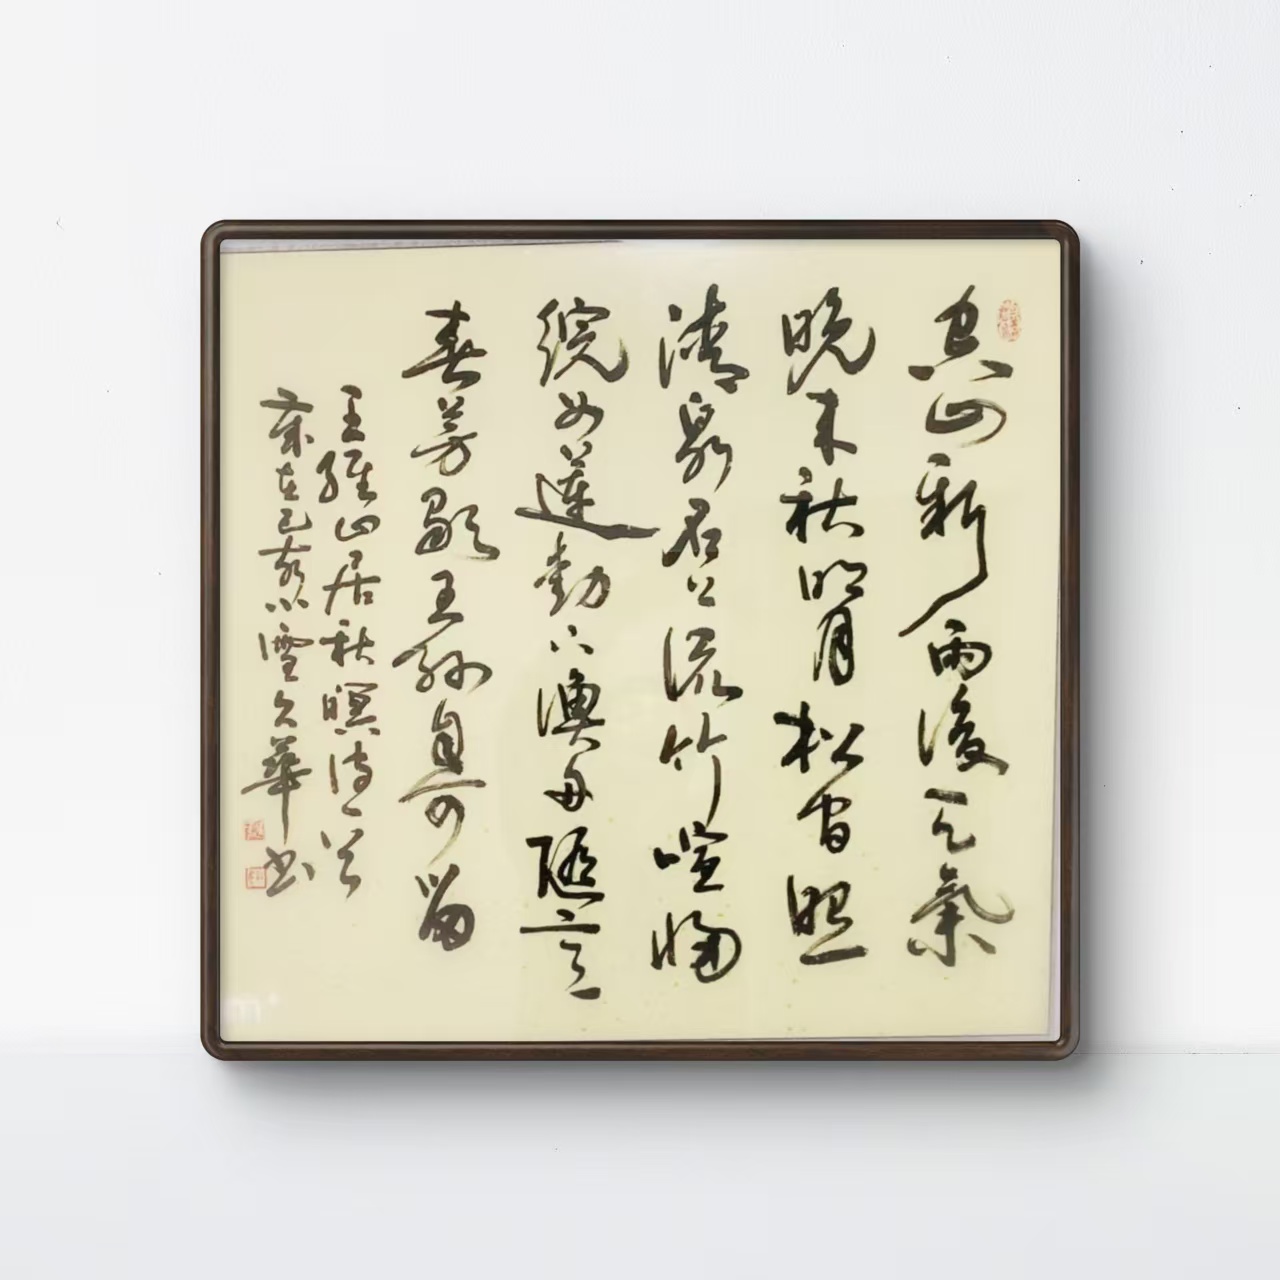 空山新雨後天氣
晚来秋明月松間照
清泉石上流竹喧歸
浣女蓮動下漁舟隨意
春芳歇王孫自可留
王維山居秋暝詩一首
歲在己亥小雪華書